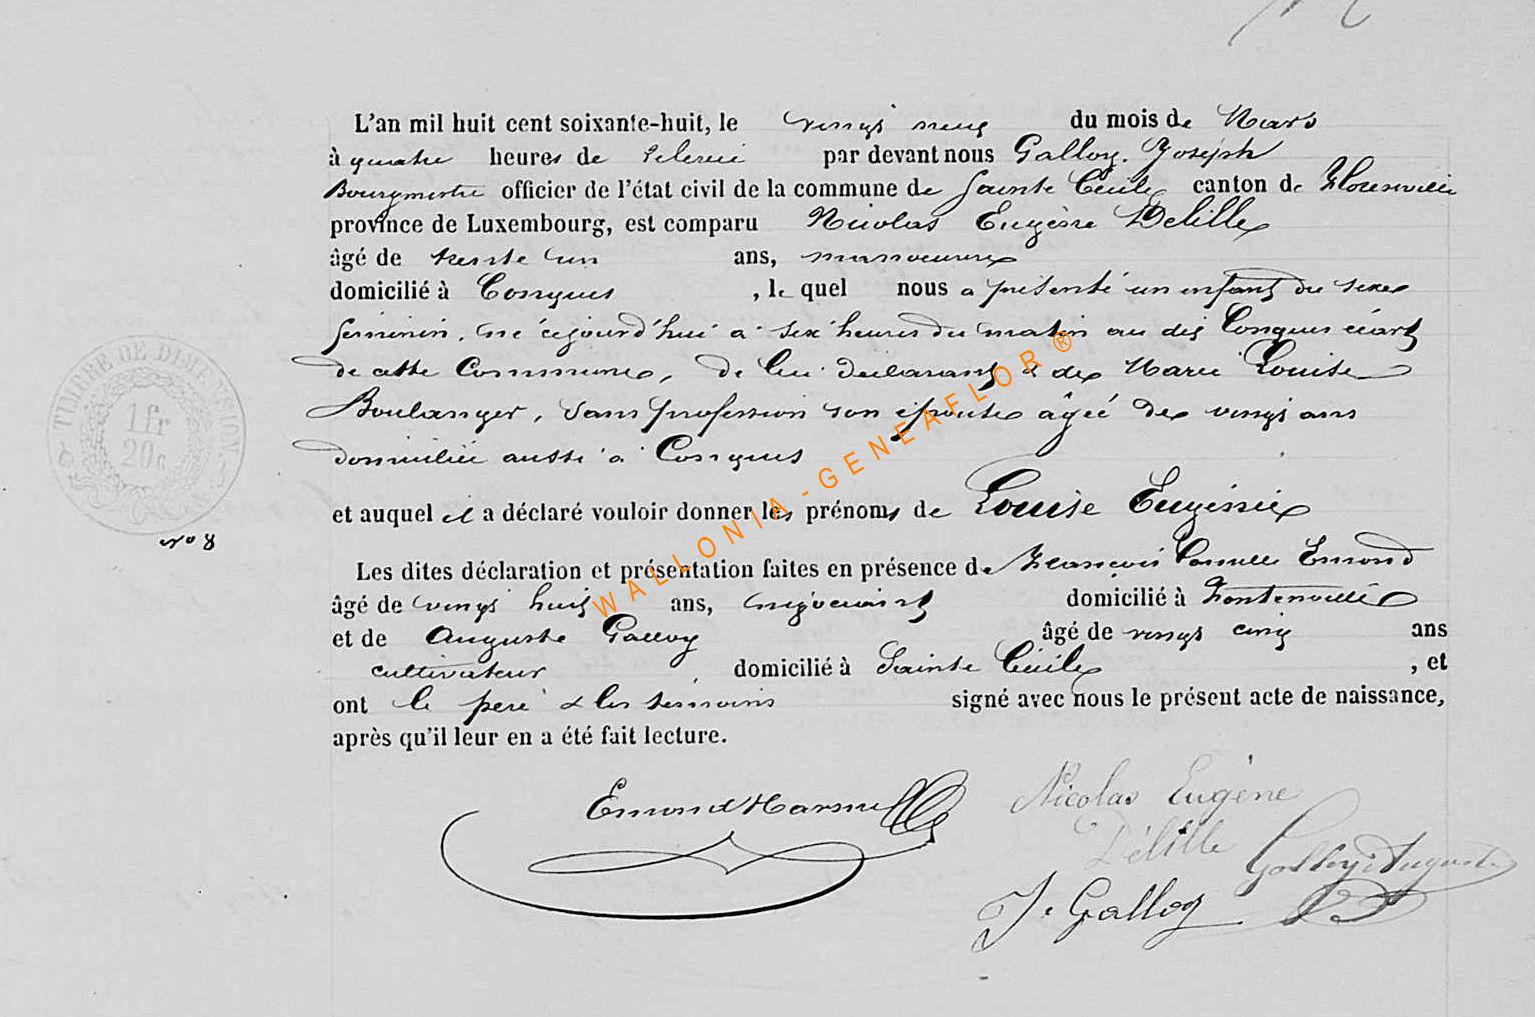 L'an mil huit cent soixante-huit, le vingt neuf du mois de Mars
à quatre heures de relevée par devant nous Galloy Joseph
Bourgmestre officier de l'état civil de la commune de Sainte Cécile canton de Florenville
province de Luxembourg, est comparu Nicolas Eugène Delille
âgé de trente un ans, manoeuvre
domicilié à Conques, le quel nous a présenté un enfant du sexe
féminin, né cejourd'hui à six heures du matin au dit Conques écart
de cette Commune, de lui déclarant & de Marie Louise
Boulanger, sans profession son épouse âgée de vingt ans
domiciliée aussi à Conques
et auquel il a déclaré vouloir donner les prénoms de Louise Eugénie
Les dites déclaration et présentation faites en présence de François Emond
âgé de vingt huit ans, négociant domicilié à Fontenoille
et de Auguste Galloy âgé de vingt cinq ans
cultivateur domicilié à Sainte Cécile, et
ont le père & les témoins signé avec nous le présent acte de naissance,
après qu'il leur en a été fait lecture.
TIMBRE DE DIMENSION
1 fr
20 c
No 8
Emond
Nicolas Eugène
Délille
Galloy Auguste
J. Galloy
WALLONIA-GENEAFLOR®